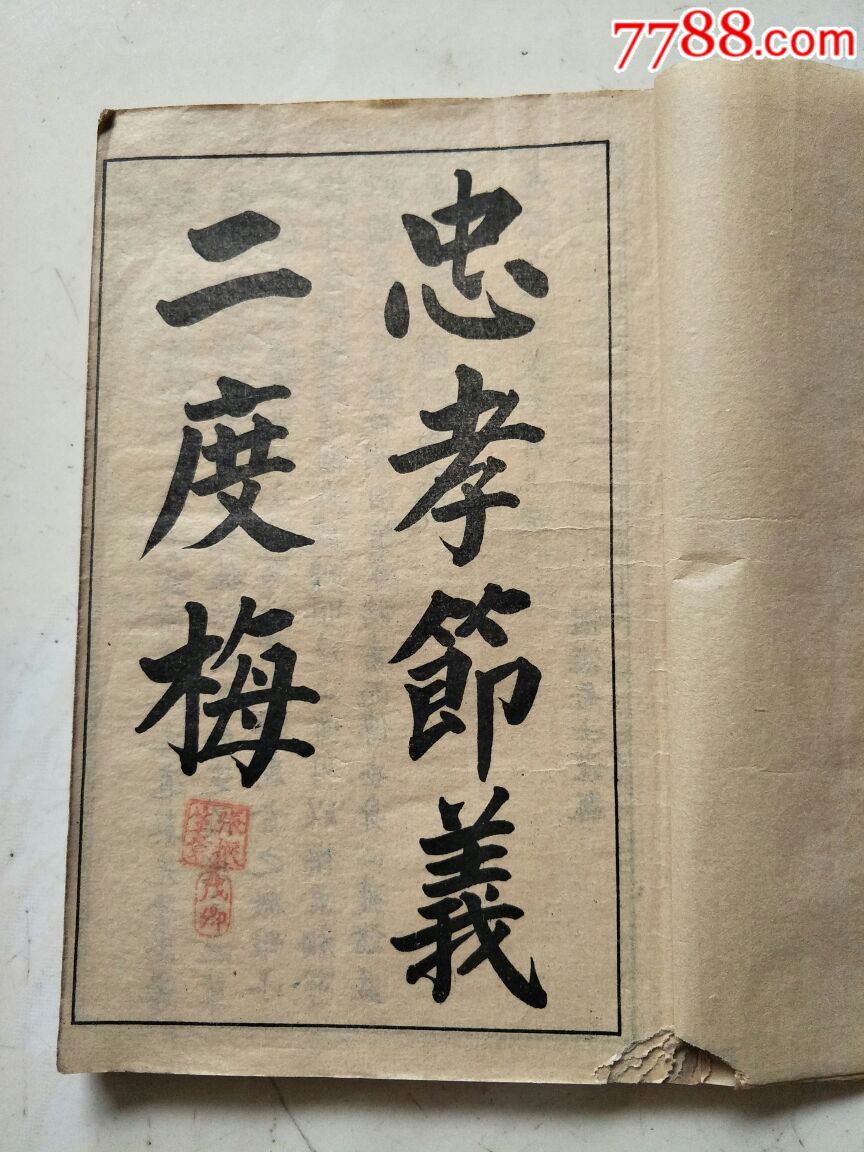 7788.com
忠孝節義
二度梅
茂卿